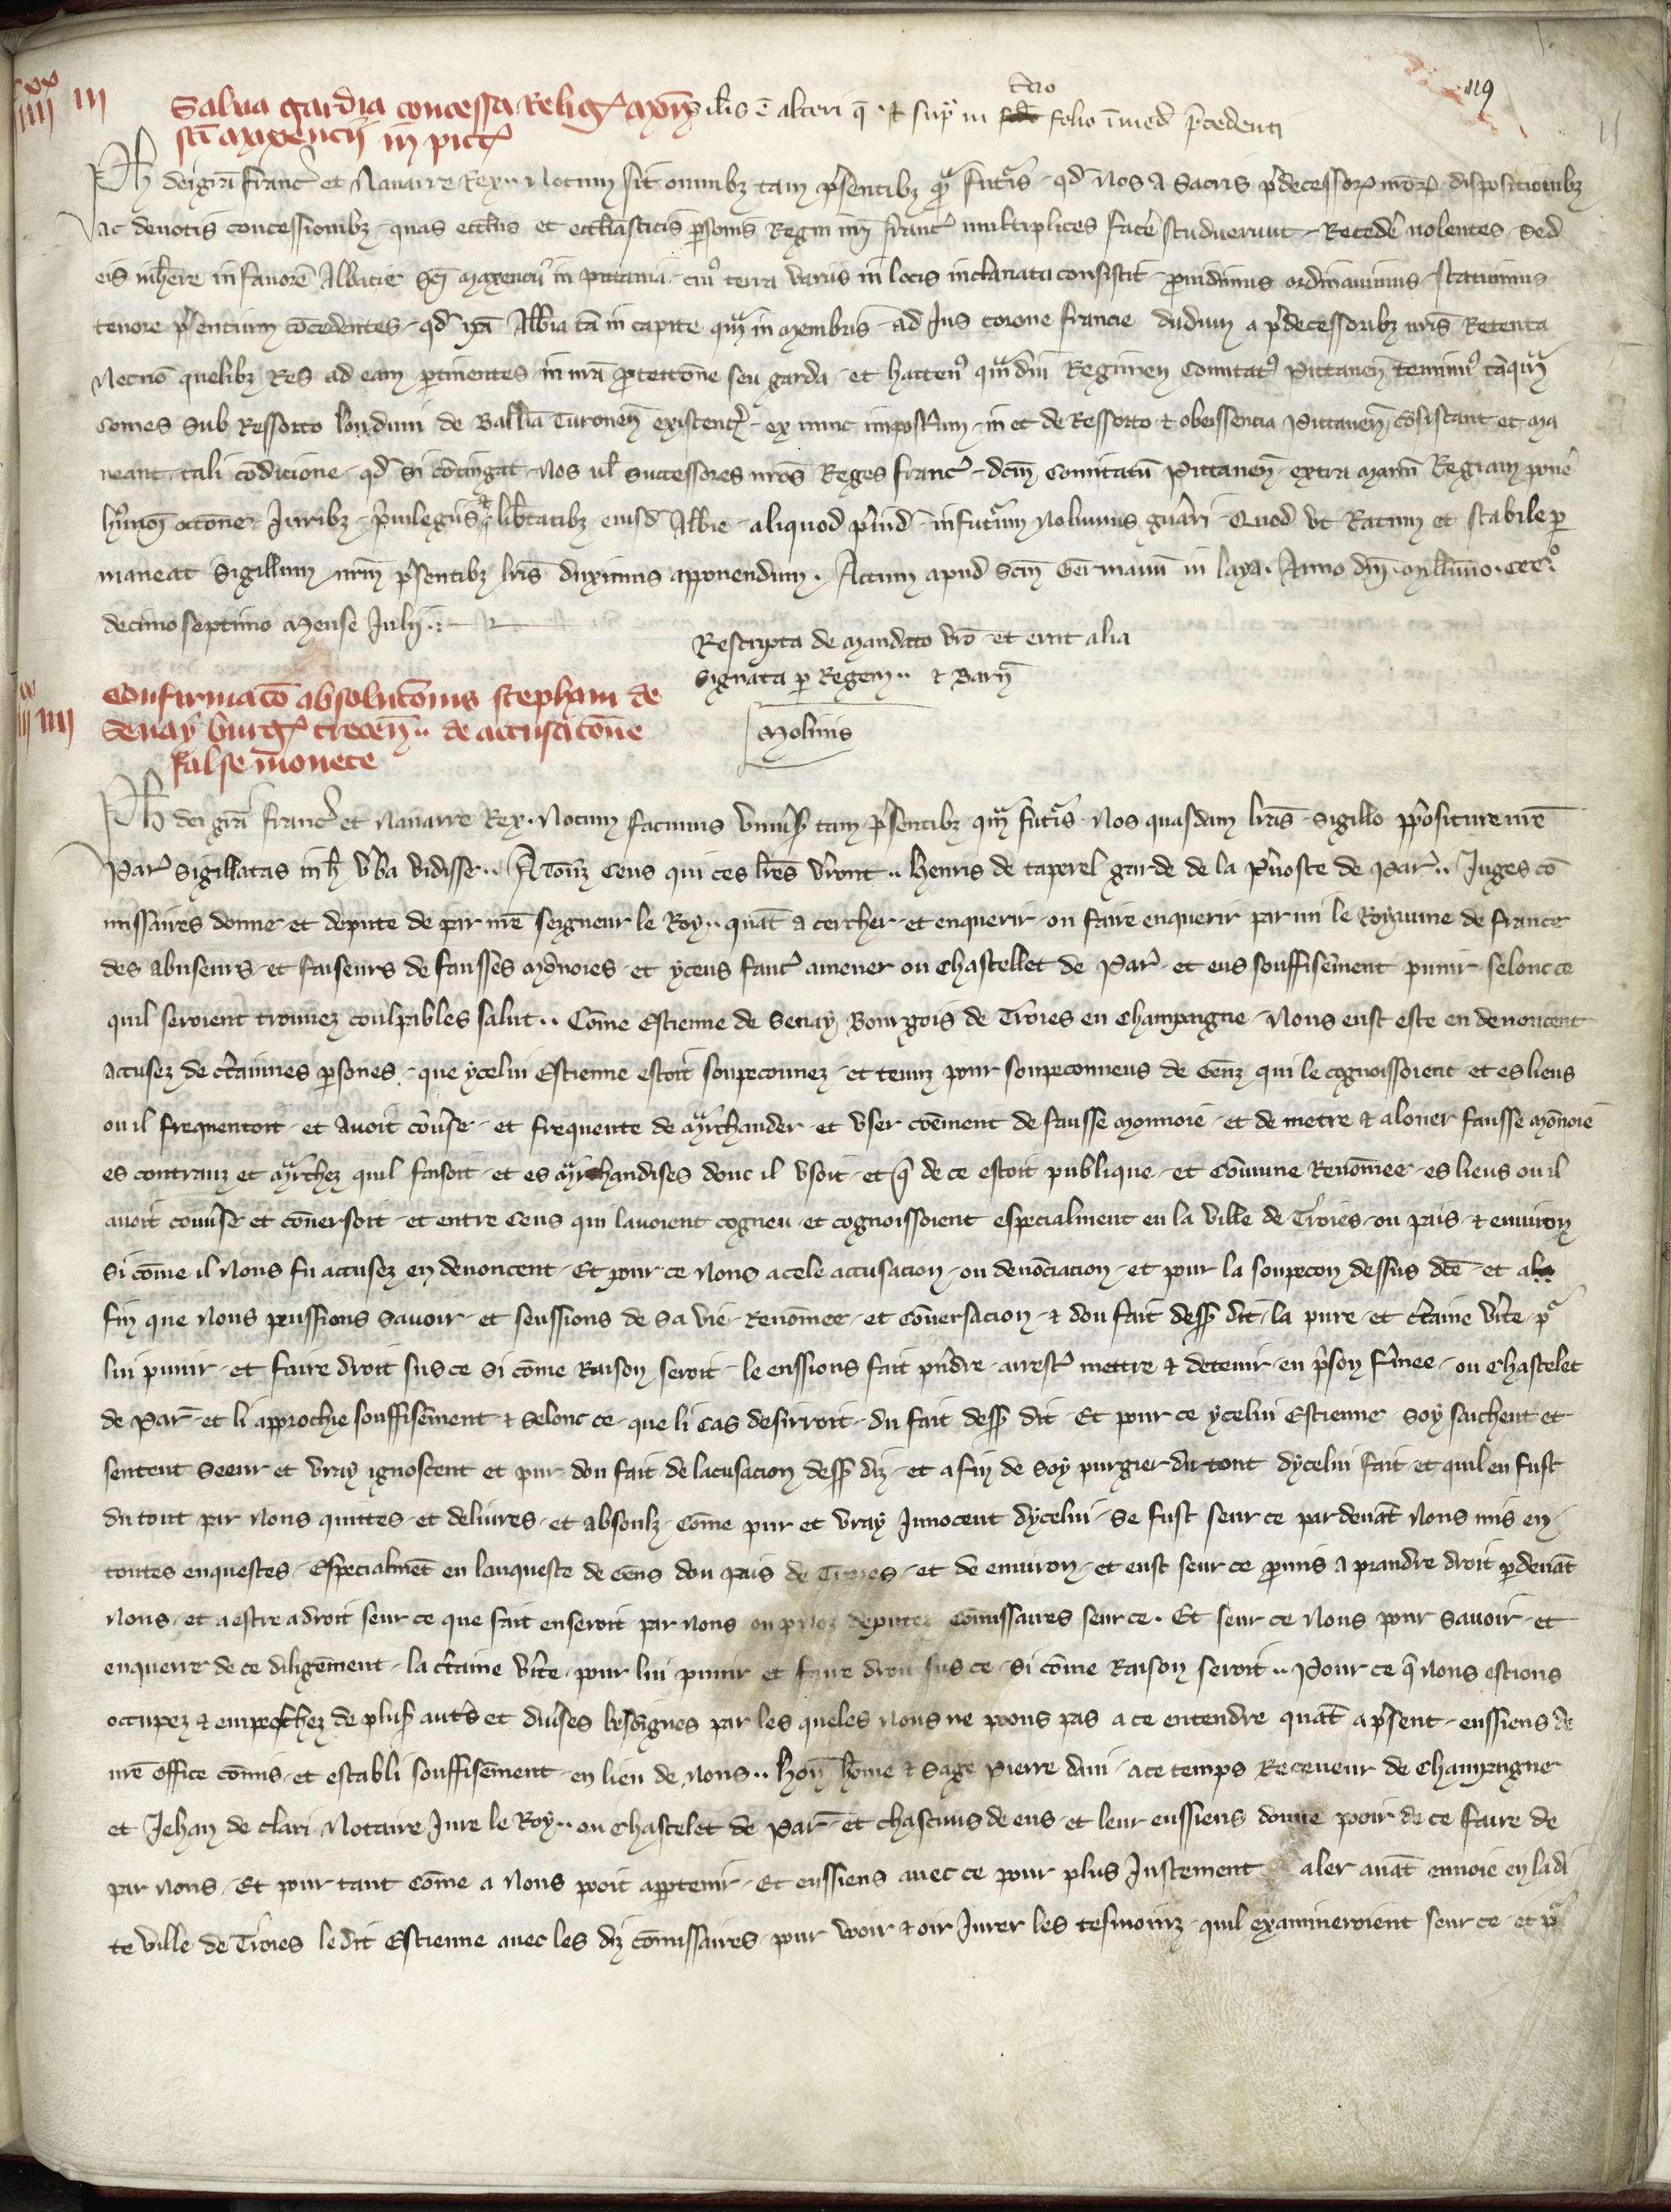 119
IIII XX III
Salua gardia concessa Relig
sci Maxencii in pict
silis ē alteri q̄ ⁊ sup̄ in folio īmed p̄cedenti
tcio
Ph dei gr̄a franc̄ et Nauarre Rex .. Notum sit omnibz tam p̄sentibz q̄ futuris qd nos a sacris p̄decessoꝝ nr̄oꝝ dispositionibz
ac deuotis concessionibz quas eccl̄iis et eccl̄iasticis p̄sonis Regni nr̄i franc̄ multiplices facē studuerunt Recedē nolentes sed
eis inh̄ere in fauorē Abbacie Sci Maxencii in pictauia cui⁹ terra variis in locis inclauata consistit prouidimus ordinauimus statuimus
tenore p̄sentium cōcedentes qd ip̄a Abb̄ia tā in capite quā in membris ad Jus corone francie dudum a p̄decessoribz nr̄is Retenta
Necnō quelibz Res ad eam p̄tinentes in nr̄a p̄tectōne seu garda et hacten⁹ quādiu Regimen Comitat⁹ Pictaueñ tenuim⁹ tāquā
Comes sub Ressorto londuni de Ball̄ia Turoneñ existent̄ ex nunc inpost̄um in et de Ressorto ⁊ obeissencia Pictaueñ cōsistant et ma
neant tali cōdicione qd si cōtingat Nos ul̄ successores nr̄os Reges franc̄ dc̄m Comitatū Pictaueñ extra manū Regiam ponē
h⁹modi occōne Juribz p̄uilegiis ⁊ lib̄tatibz eiusd̄ Abb̄ie aliquod p̄iud̄ infut̄um nolumus gn̄ari Quod vt Ratum et stabile p
maneat Sigillum nr̄m p̄sentibz lr̄is duximus apponendum . Actum apud Scm Germanū in laya . Anno dn̄i millīmo . ccc°.
decimo septimo Mense Julij .:
Rescripta de Mandato vr̄o et erat alia
signata p Regem .. ⁊ Barr̄
Molinis
XX IIII IIII
Confirmacō absolucōnis stephani de
Senay burḡ trecen̄ .. de accusacōne
false monete
Ph dei gr̄a franc̄ et Nauarre Rex . Notum facimus vniu̓s tam p̄sentibz quā fut̄is Nos quasdam lr̄as sigillo p̄positure nr̄e
Par̄ sigillatas in h̄ v̄ba vidisse .. A Touz ceus qui ces lr̄es v̄ront .. Henris de taperel garde de la p̄uoste de Par̄ .. Juges cō
missaires donne et depute de par nr̄e seigneur le Roy .. quāt a cercher et enquerir ou faire enquerir par mi le Royaume de france
des abuseurs et faiseurs de fausses mōnoies et yceus faic̄ amener ou Chastellet de Par̄ et eus souffisēment punir selonc ce
quil seroient trouuez coulpables salut .. Cōme Estienne de Senay Bourgois de Troies en Champaigne Nous eust este en denoncent
accusez de c̄taines p̄sones que ycelui Estienne estoit soupeconnez et tenuz pour soupeconneus de Genz qui le cognoissoient et es lieus
ou il frequentoit et auoit cōu̓se et frequente de m̄rchander et vser cōēment de fausse monnoie et de metre ⁊ alouer fausse mōnoie
es contrauz et m̄rchez quil faisoit et es m̄rchandises donc il vsoit et q̄ de ce estoit publique et Cōmune Renōmee es lieus ou il
auoit conu̓se et cōuersoit et entre ceus qui lauoient cogneu et cognoissoient especialment en la ville de Troies ou pais ⁊ enuiron
si cōme il Nous fu accusez en denoncent Et pour ce Nous a cele accusacion ou denōciacion et pour la soupecon dessus dc̄e et a la
fin que Nous peussions sauoir et seussions de sa vie Renōmee et Cōuersacion ⁊ dou fait dess̄ dit la pure et c̄taine v̄ite p
lui punir et faire droit sus ce si cōme Raison seroit le eussions fait p̄ndre arrest̄ mettre ⁊ detenir en p̄son f̄mee ou Chastelet
de Par̄ et li approchie souffisēment ⁊ selonc ce que li cas desirroit du fait dess̄ dit Et pour ce ycelui Estienne soy saichent et
sentent seeur et vray ignoscent et pur dou fait de lacusacion dess̄ diz et a fin de soy purgier du tout dycelui fait et quil en fust
du tout par Nous quittes et deliures et absoulz Cōme pur et vray Jnnocent dycelui se fust seur ce par deuāt Nous mis en
toutes enquestes Especialmēt en lanqueste de Gens dou pais de Troies et de enuiron et eust seur ce pmis a prandre droit p deuāt
Nous et a estre a droit seur ce que fait en seroit par Nous ou p Noz deputez Cōmissaires seur ce . Et seur ce Nous pour sauoir et
enquerre de ce diligēment la c̄taine v̄ite pour lui punir et faire droit sus ce si cōme Raison seroit .. Pour ce q̄ Nous estions
occupez ⁊ empeschez de plus̄ aut̄s et diu̓ses besoignes par les queles Nous ne poons pas a ce entendre quāt a p̄sent eussiens de
nr̄e office cōmis et establi souffisēment en lieu de Nous .. Hon̄ hōme ⁊ sage Pierre dani a ce temps Receueur de Champaigne
et Jehan de clari Notaire Jure le Roy .. ou Chastelet de Par̄ et chascuns de eus et leur eussiens donne pooir de ce faire de
par Nous Et pour tant Cōme a Nous pooit appartenir Et eussiens auec ce pour plus Justement aler auāt enuoie en ladi
te ville de Troies ledit Estienne auec les diz cōmissaires pour veoir ⁊ oir Jurer les tesmoinz quil examineroient seur ce et p